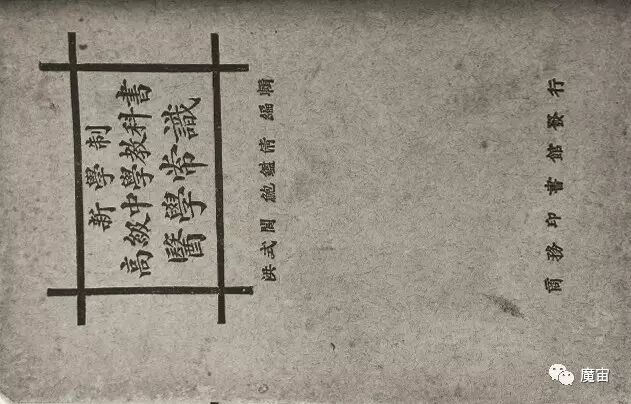 新學制
高級中學教科書
醫學常識
洪式閭 鮑鑑清 編輯
商務印書館發行
魔宙